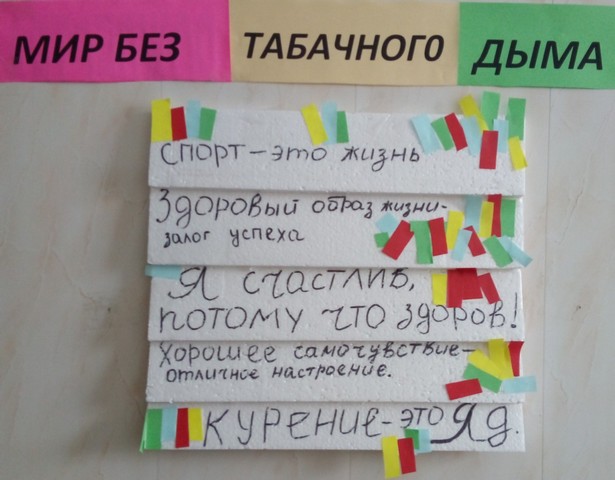 МИР БЕЗ ТАБАЧНОГО ДЫМА
СПОРТ – это жизнь
Здоровый образ жизни-
залог успеха
Я счастлив,
потому что здоров!
Хорошее самочувствие –
отличное настроение.
КУРЕНИЕ - это Яд.